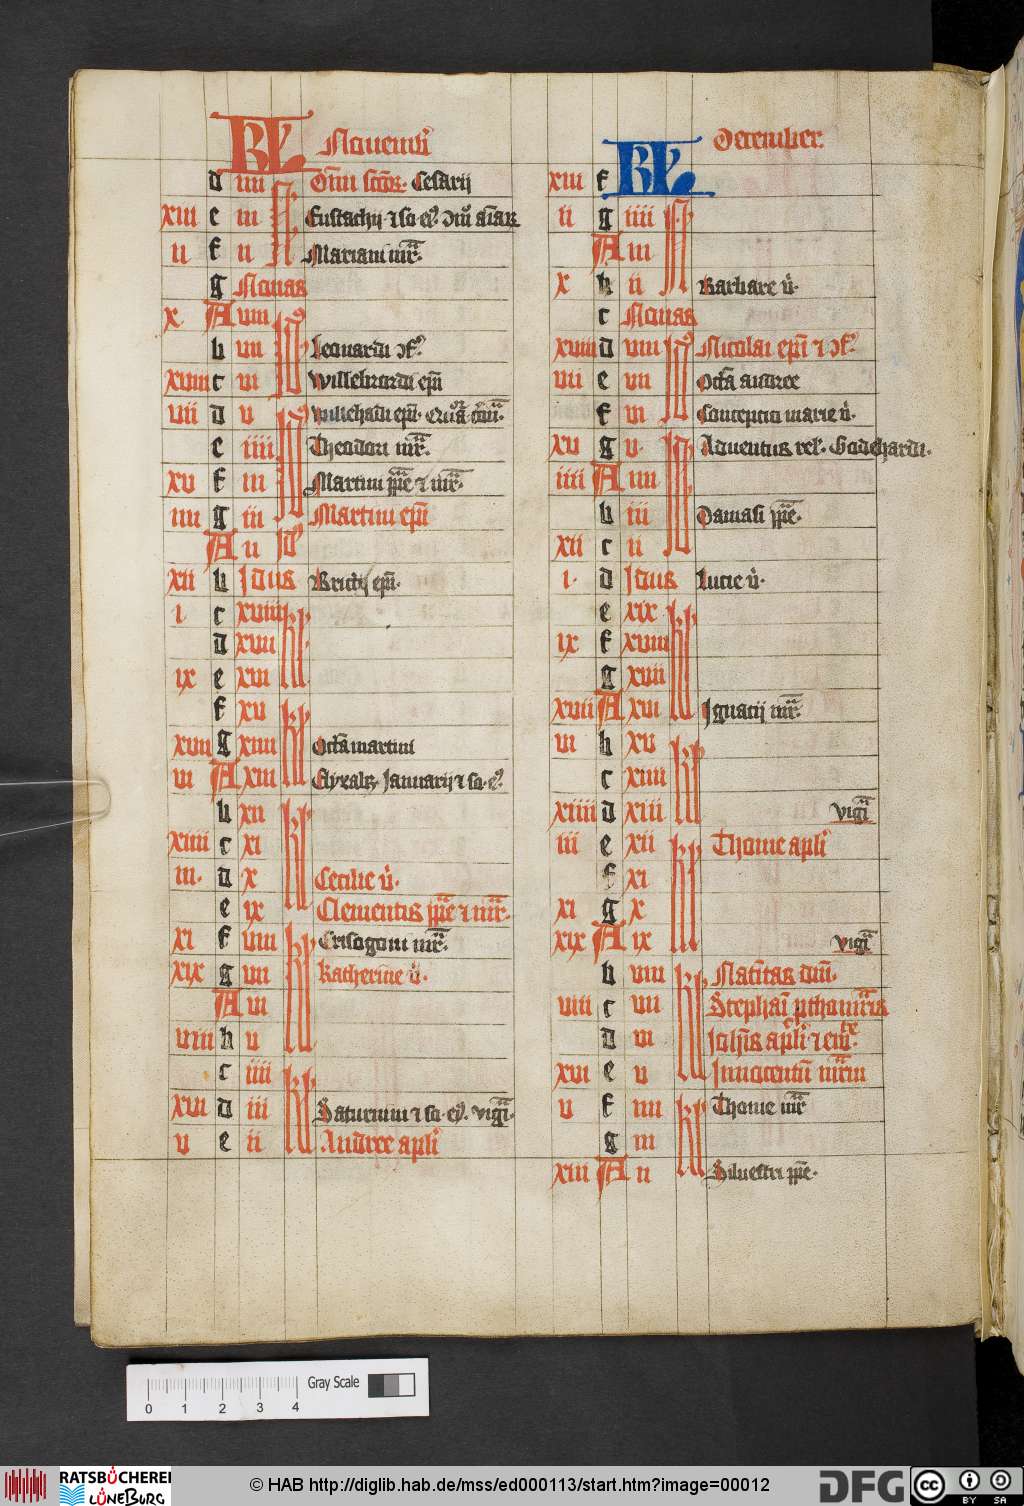 KL Novemb
d iiii Om̄i sct̄oꝝ. Cesarij
xiii e iii N Eustachij ⁊ so. eꝰ
ii f ii Mariani mr̄.
g Nonas
x A viii Id
b vii Leonardi
xviii c vi Willehadi ep̄i
vii d v Willehadi ep̄i.
e iiii Theodori mr̄.
xv f iii Martini pp̄e ⁊ mr̄.
iiii g iii Martini ep̄i
A ii Id
xii b Idus Briccij ep̄i.
i c xviii kl
d xvii
ix e xvi
f xv kl
xvii g xiiii Octa martini
vi A xiii Elyzab. Januarij ⁊ so. eꝰ
b xii kl
xiiii c xi
iii. d x Cecilie v̄.
e ix Clementis pp̄e ⁊ mr̄.
xi f viii kl Crisogoni mr̄.
xix g vii Katherine v̄.
A vi
viii b v
c iiii kl
xvi d iii Saturnini ⁊ so. eꝰ. vigī.
v e ii Andree apli
KL December.
xiii f
ii g iiii N
A iii
x b ii Barbare v̄.
c Nonas
xviii d viii Id Nicolai ep̄i ⁊ ꝯf.
vii e vii Octa andree
f vi Conceptio marie v̄.
xv g v. Id Adventus rel. Godehardi.
iiii A iiii
b iii Damasi pp̄e.
xii c ii
i. d Idus Lucie v̄.
e xix kl
ix f xviii
g xvii
xvii A xvi Ignacij mr̄.
vi b xv kl
c xiiii
xiiii d xiii vigī
iii e xii kl Thome apli
f xi
xi g x
xix A ix vigī
b viii kl Natīitas dn̄i.
viii c vii Stephani ꝓthomr̄is
d vi Joh̄is apli. ⁊ ew̄te.
xvi e v Innocentū mr̄m
v f iiii kl Thome mr̄
g iii
xiii A ii Silvestri pp̄e.
0 1 2 3 4 Gray Scale
RATSBÜCHEREI LÜNEBURG
© HAB http://diglib.hab.de/mss/ed000113/start.htm?image=00012
DFG
cc BY SA